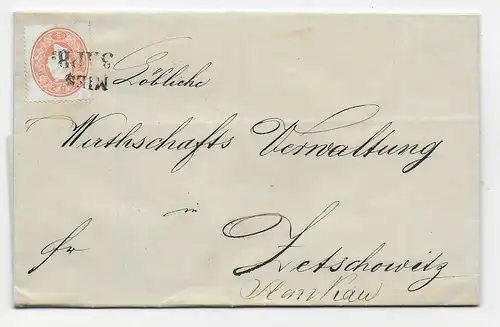 MIES
Löbliche
Wirthschafts Verwaltung
in
fr Zetschowitz
Stankau